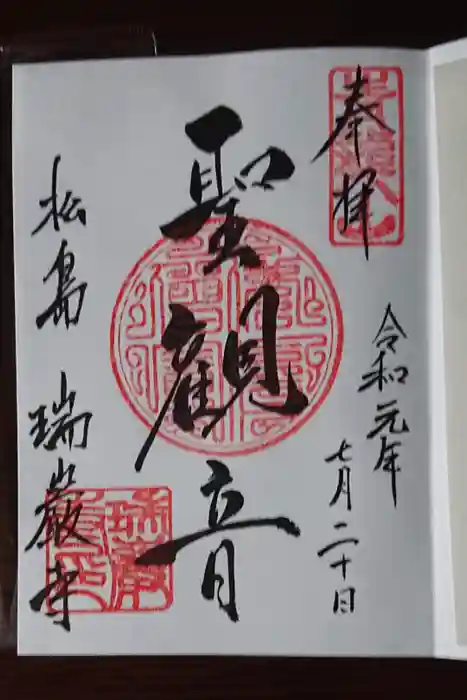 奉拝
令和元年
七月二十日
聖観音
松島 瑞巖寺